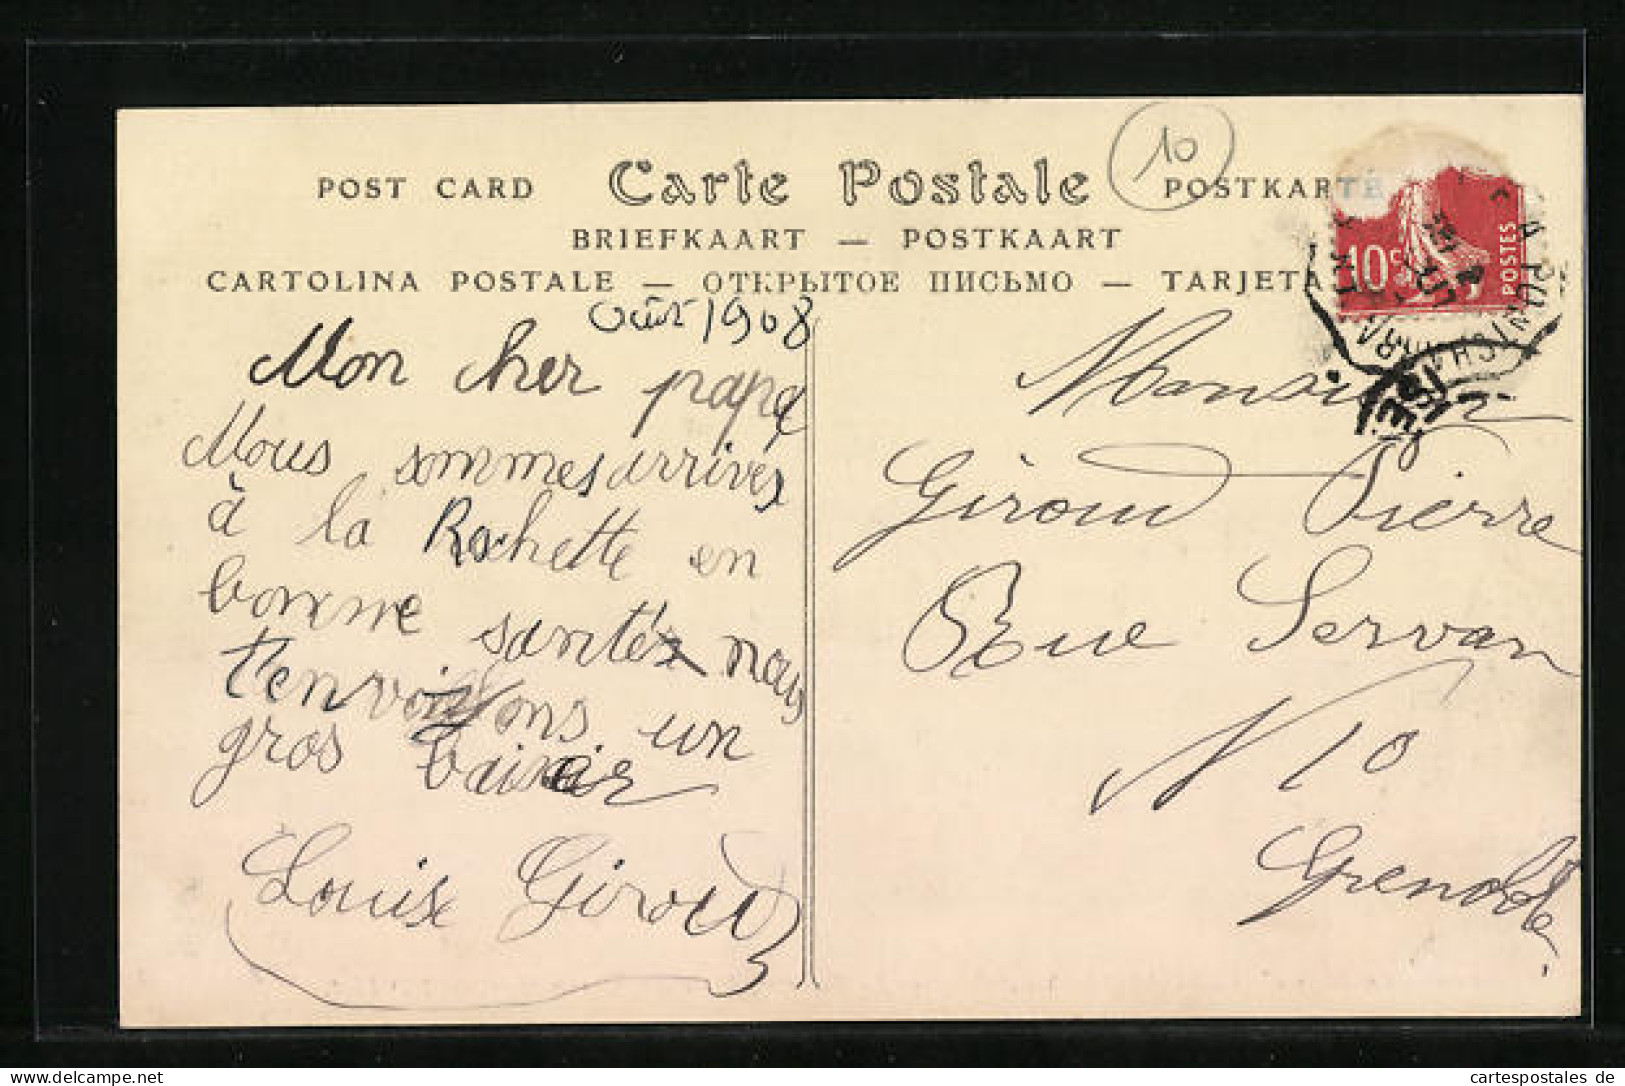 10
POST CARD Carte Postale POSTKARTE
BRIEFKAART — POSTKAART
CARTOLINA POSTALE — ОТКРЫТОЕ ПИСЬМО — TARJETA
Août 1908
Mon cher papa
Nous sommes arrives
à la Rochette en
bonne santé nous
t'envoiyons un
gros baiser
Louise Giroud
10c
POSTES
Monsieur
Giroud Pierre
Rue Servan
N 10
Grenoble
ISÈRE
hippostcard / Delcampe
cartespostales de